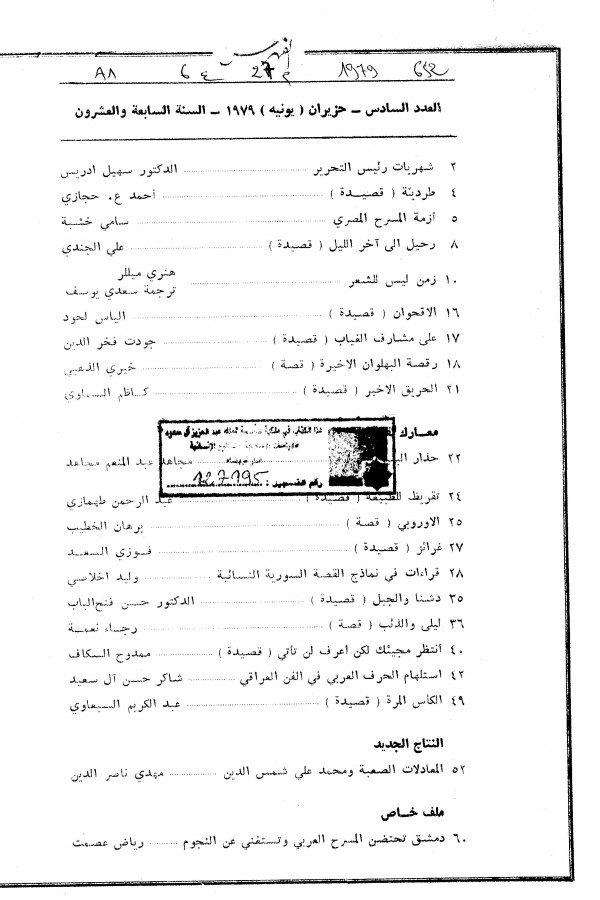 الفهرس
A8 6 ع 27 م 1979 652
العدد السادس – حزيران ( يونيه ) ١٩٧٩ – السنة السابعة والعشرون
٢ شهريات رئيس التحرير الدكتور سهيل ادريس
٤ طردية ( قصيدة ) أحمد ع. حجازي
٥ أزمة المسرح المصري سامي خشبة
٨ رحيل الى آخر الليل ( قصيدة ) علي الجندي
١٠ زمن ليس للشعر هنري ميللر
ترجمة سعدي يوسف
١٦ الاقحوان ( قصيدة ) الياس لحود
١٧ على مشارف الغياب ( قصيدة ) جودت فخر الدين
١٨ رقصة البهلوان الاخيرة ( قصة ) خيري الذهبي
٢١ الحريق الاخير ( قصيدة ) كاظم السماوي
معارك
٢٢ حذار مجاهد عبد المنعم مجاهد
رقم التسجيل : 127195
٢٤ تقريظ للطبيعة ( قصيدة ) عبد الرحمن طهمازي
٢٥ الاوروبي ( قصة ) برهان الخطيب
٢٧ غرائز ( قصيدة ) فوزي السعيد
٢٨ قراءات في نماذج القصة السورية النسائية وليد اخلاصي
٣٥ دشنا والجبل ( قصيدة ) الدكتور حسن فتح الباب
٣٦ ليلى والذئب ( قصة ) رجاء نعمة
٤٠ أنتظر مجيئك لكن أعرف لن تأتي ( قصيدة ) ممدوح السكاف
٤٢ استلهام الحرف العربي في الفن العراقي شاكر حسن آل سعيد
٤٩ الكأس المرة ( قصيدة ) عبد الكريم السبعاوي
النتاج الجديد
٥٢ المعادلات الصعبة ومحمد علي شمس الدين مهدي ناصر الدين
ملف خاص
٦٠ دمشق تحتضن المسرح العربي وتستغني عن النجوم رياض عصمت